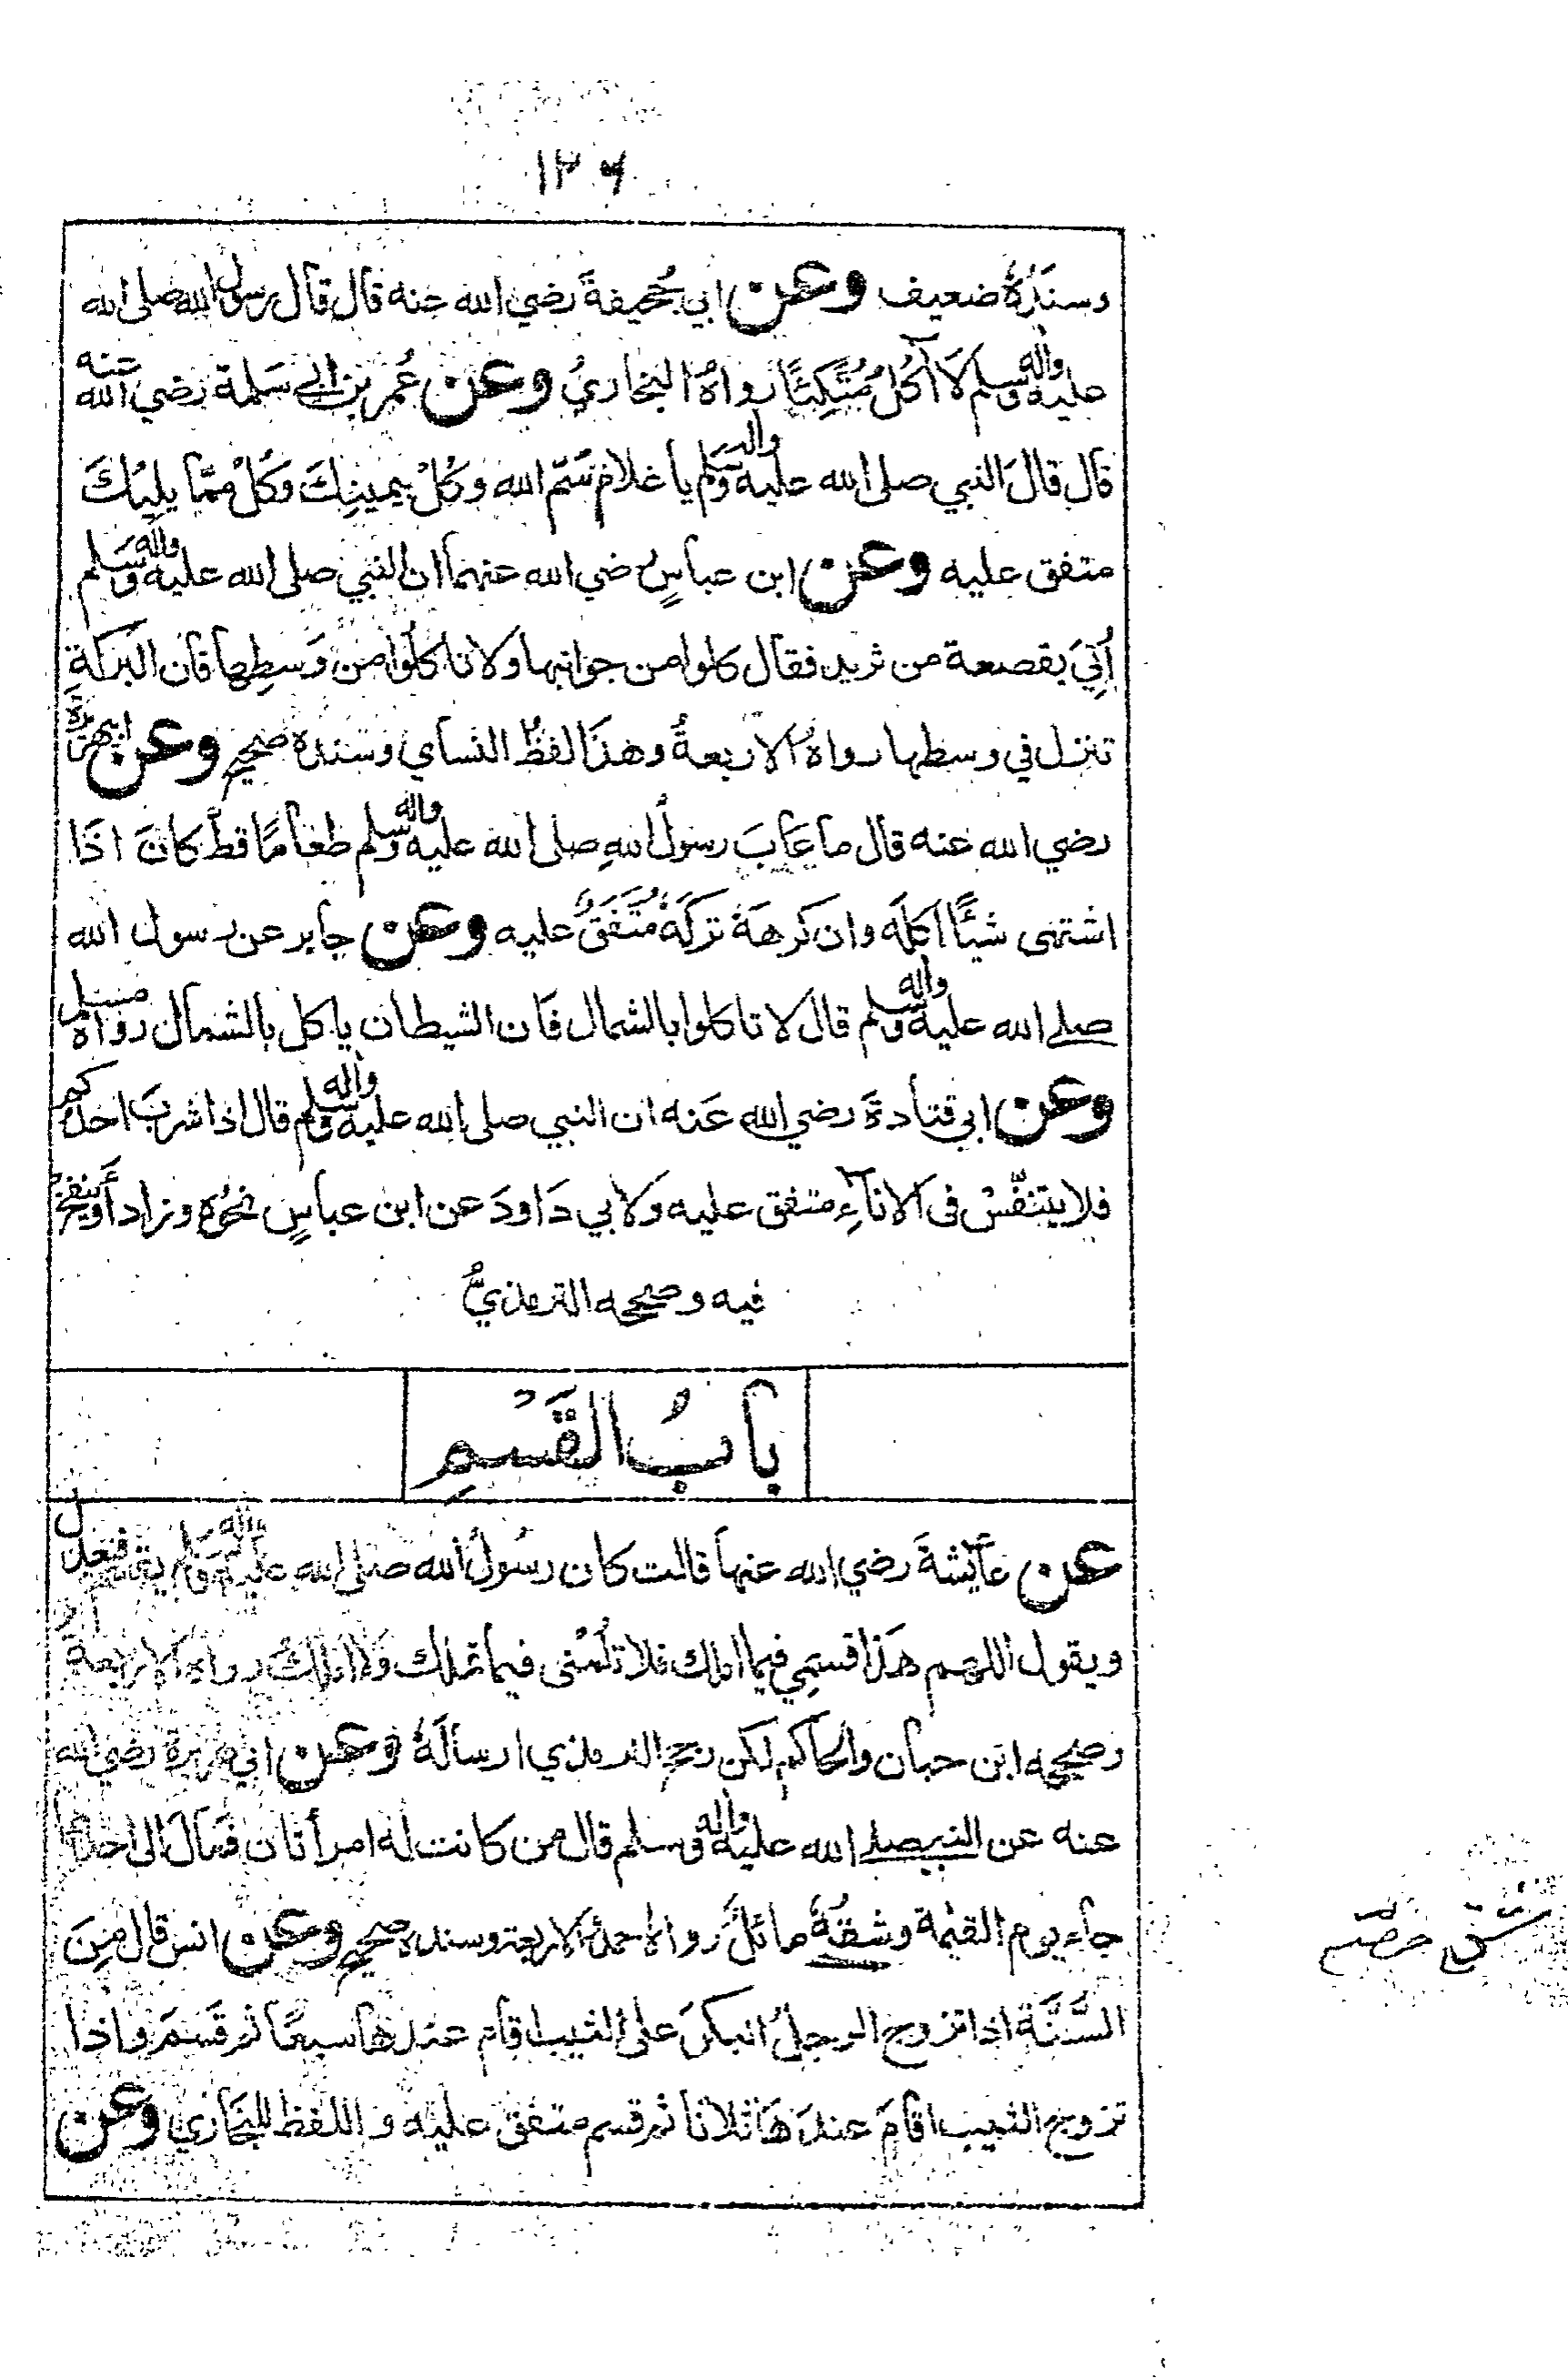 ١٢٦
وسندُهُ ضعيف وعن ابي جُحيفةَ رضي الله عنه قال قال رسول الله صلى الله
عليه واله وسلم لَا آكُلُ مُتَّكِئًا رواهُ البخاريُ وعن عُمر بن ابي سَلمة رضي الله عنه
قال قالَ النبي صلى الله عليه واله وسلم يا غلامُ سَمِّ الله وكُلْ بيمينِكَ وكُلْ مِمّا يلِيكَ
متفق عليه وعن ابن عباسٍ رضي الله عنهما ان النبي صلى الله عليه واله وسَلم
اُتِيَ بقصعة من ثريد فقال كلوا من جوانبها ولا تاكلوا من وَسطِها فان البركة
تنزل في وسطها رواهُ الاربعةُ وهذَا لفظُ النساي وسنده صحيح وعن ابي هريرة
رضي الله عنه قال ما عَابَ رسولُ اللهِ صلى الله عليه واله وسلم طعامًا قطُّ كانَ اذَا
اشتهى شيئًا اكلَه وان كرههُ تركهُ مُتَّفَقٌ عليه وعن جابر عن رسول الله
صلى الله عليه واله وسلم قال لا تاكلوا بالشمال فان الشيطان ياكل بالشمال رواه مسلم
وعن ابي قتادةَ رضي الله عَنه ان النبي صلى الله عليه واله وسلم قال اذا شربَ احدكم
فلا يتنفّسْ في الاناءِ متفق عليه ولابي دَاودَ عن ابن عباسٍ نحوُه وزاد أوينفخ
فيه وصححه الترمذيُّ
بابُ القَسْمِ
عن عايشةَ رضي الله عنها قالت كان رسُولُ الله صلى الله عليه واله وسلم يقسم فيعدل
ويقول اللهم هَذا قسمِي فيما املك فلا تلُمْنى فيما تملك وَلا املكُ رواه الاربعة
وصححه ابن حبان والحاكم لكن رجح الترمذي ارسالَهُ وعن ابي هريرة رضي الله
عنه عن النبي صلى الله عليه واله وسلم قال من كانت له امرأتان فمالَ الى احداهما
جاء يوم القيمة وشقهُ مائلٌ رواه احمد والاربعة وسنده صحيح وعن انس قال مِنَ
السُّنَّةِ اذا تزوج الرجلُ البكرَ على الثيب اقام عندها سبعًا ثم قَسَمَ واذا
تزوج الثيب اقامَ عندَهَا ثلاثا ثم قسم متفق عليه واللفظ للبخاري وعن